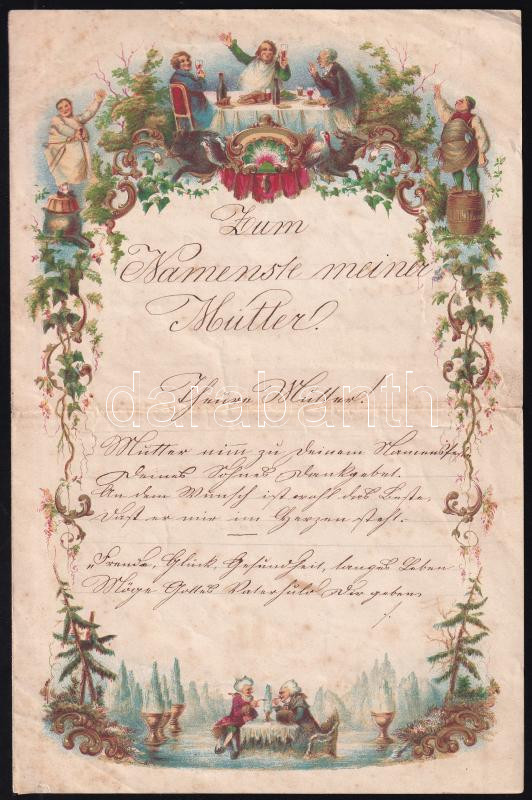 Zum
Namenste meiner
Mutter.
Theure Mutter!
Mutter nimm zu Deinem Namensfest
Deines Sohnes Dankgebet.
An dem Wunsch ist wohl das Beste,
Daß er mir im Herzen steht.
„Freude, Glück, Gesundheit, langes Leben
Möge Gottes Vaterhuld Dir geben
darabanth